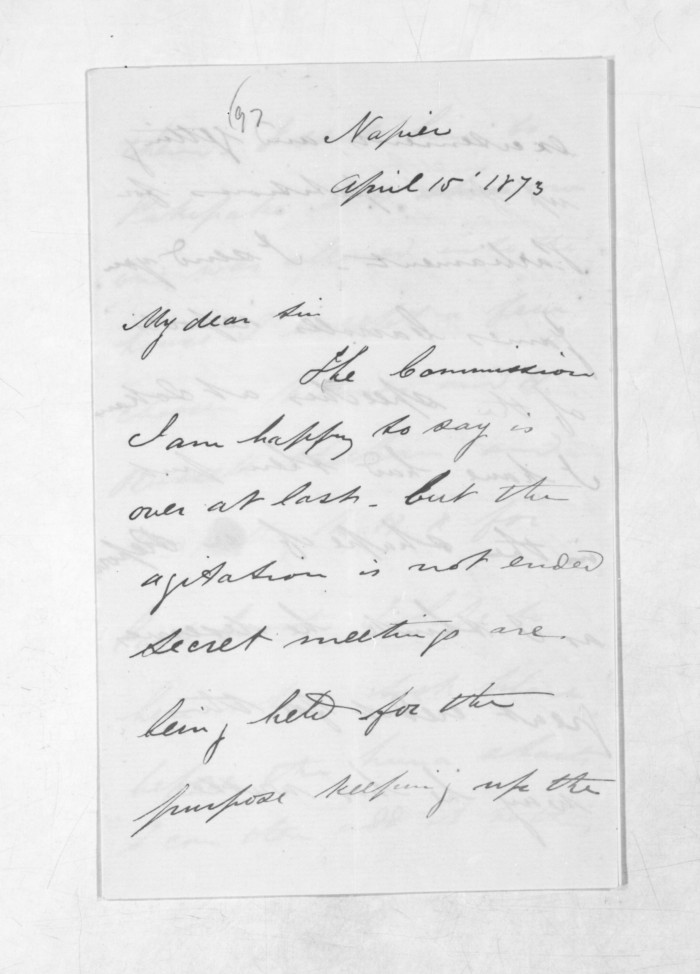 (97
Napier
April 15' 1873
My dear Sir
The Commission
I am happy to say is
over at last - but the
agitation is not ended
secret meetings are
being held for the
purpose keeping up the